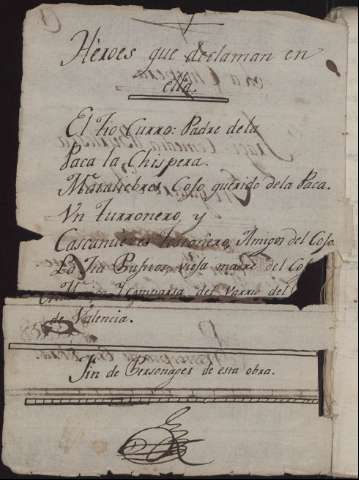 Heroes que declaman en
ella.
El tio Curro: Padre dela
Paca la Chispera.
Mataliebres Cojo querido dela Paca.
Vn turronero, y
Cascanueces Amigos del Cojo
La tia vieja madre del Co
Comparsa del Varrio del
de Valencia.
Fin de Personages de esta obra.